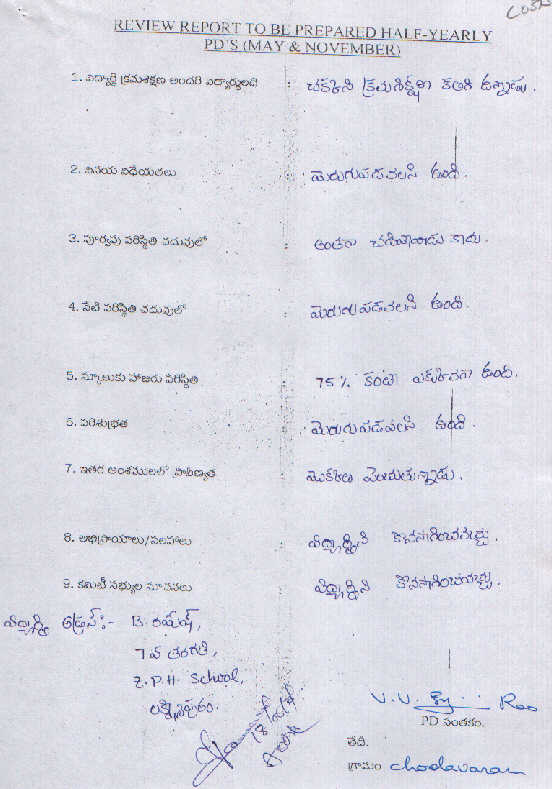 REVIEW REPORT TO BE PREPARED HALF-YEARLY
PD'S (MAY & NOVEMBER)
1. విద్యార్థి క్రమశిక్షణ అందరి విద్యార్థులతో : చక్కని క్రమశిక్షణ కలిగి ఉన్నాడు.
2. వినయ విధేయతలు : మెరుగుపడవలసి ఉంది.
3. పూర్వపు పరిస్థితి చదువులో : అంతగా చదివేవాడు కాదు.
4. నేటి పరిస్థితి చదువులో : మెరుగుపడవలసి ఉంది.
5. స్కూలుకు హాజరు పరిస్థితి : 75% కంటే ఎక్కువగా ఉంది.
6. పరిశుభ్రత : మెరుగుపడవలసి ఉంది.
7. ఇతర అంశములలో ప్రావీణ్యత : మొక్కలు పెంచుతున్నాడు.
8. అభిప్రాయాలు/సలహాలు : విద్యార్థిని కొనసాగించవచ్చు.
9. కమిటీ సభ్యుల సూచనలు : విద్యార్థిని కొనసాగించవచ్చు.
విద్యార్థి అడ్రస్ :- B. రమేష్,
7వ తరగతి,
Z.P.H. School,
లక్ష్మీపురం.
V.V. Rao
PD సంతకం.
తేది.
గ్రామం Chodavaram